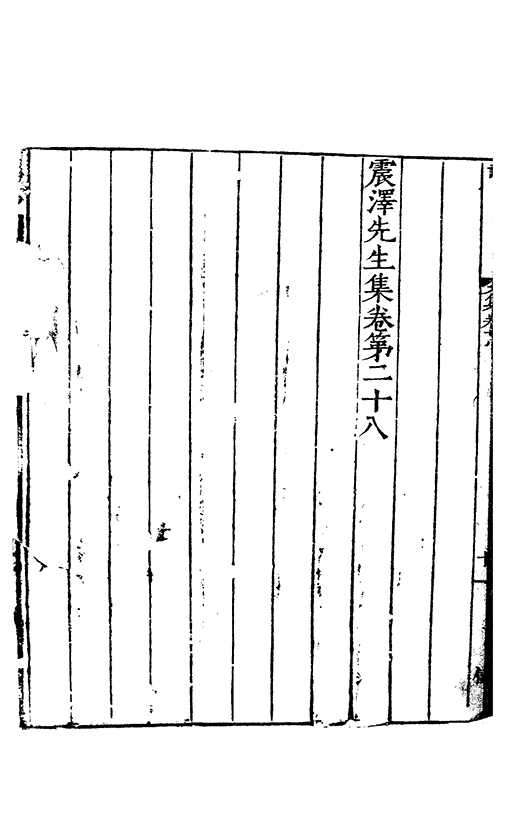 震澤先生集卷第二十八